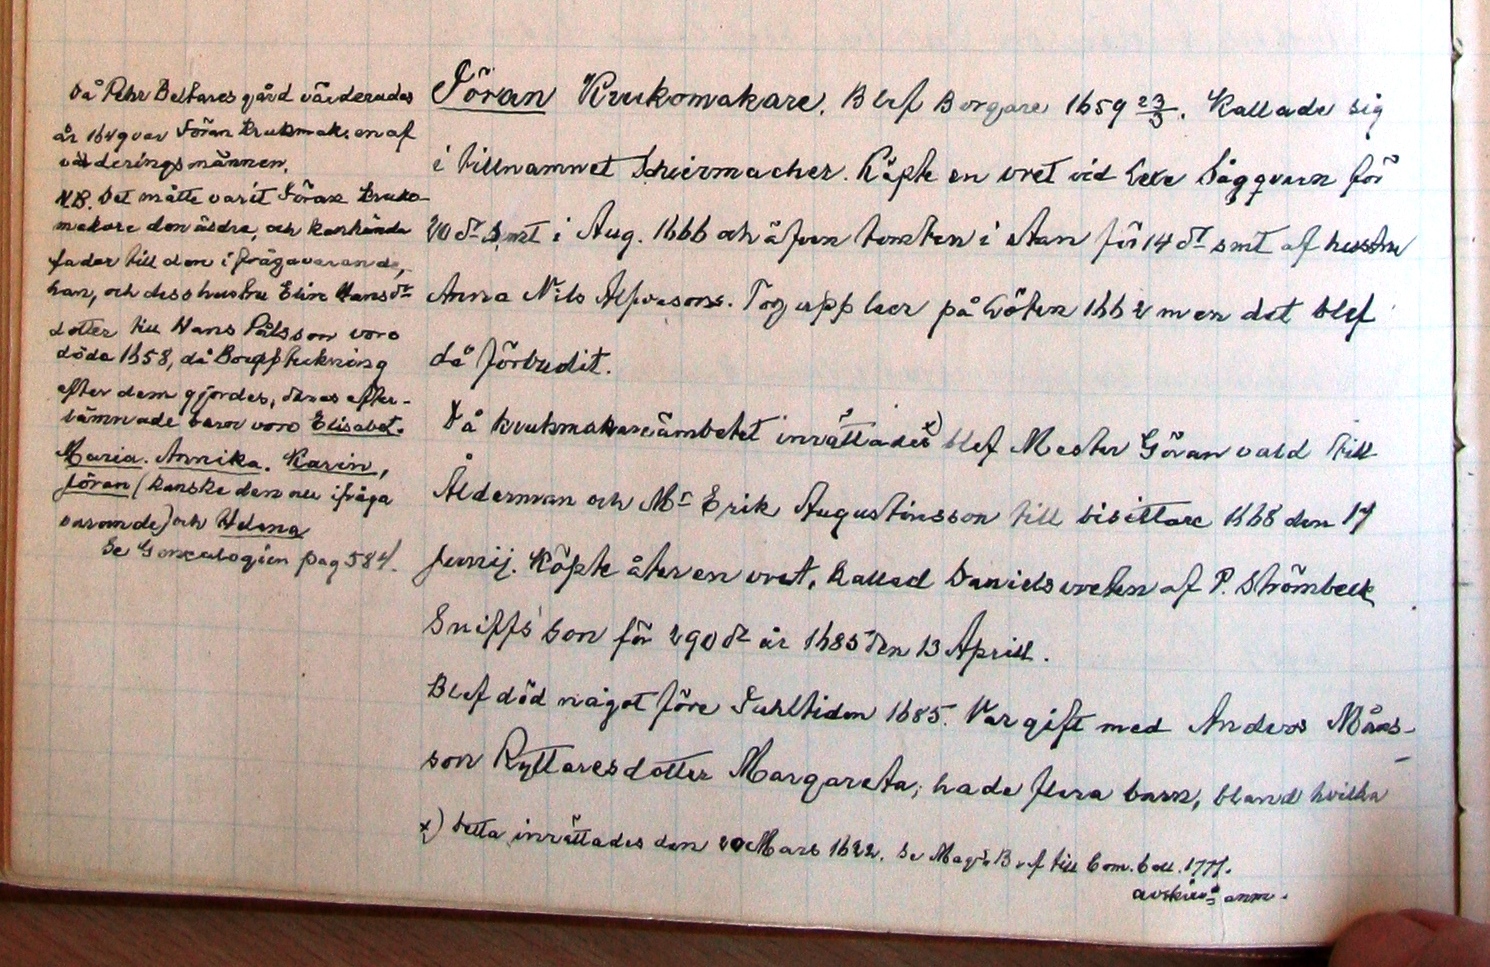 Då Pehr Beltares gård värderades
år 1649 var Jöran krukmak. en af
värderingsmännen.
N.B. Det måtte varit Jöran kruko-
makare den äldre, och kanhända
fader till den i frågavarande,
han, och dess hustru Elin Hans dr
dotter till Hans Pålsson voro
döda 1658, då Bouppteckning
efter dem gjordes, deras efter-
lämnade barn voro Elisabet.
Maria. Annika. Karin,
Jöran (kanske den nu ifråga
varande) och Helena
Se Genealogien pag 584.
Jöran Krukomakare. Blef Borgare 1659 23/3. Kallade sig
i tillnamnet Schiermacher. Köpte en vret vid Sågqvarn för
20 dr smt i Aug. 1666 och äfven tomten i stan för 14 dr smt af hustru
Anna Nils Alfvasons. Tog upp leer på Göten 1662 men det blef
då förbudit.
Då krukmakareämbetet inrättades x) blef Mester Göran vald till
Ålderman och Mr Erik Augustinsson till bisittare 1668 den 17
Junij. Köpte åter en vret, kallad Danielsvreten af P. Strömbeck
Sniffs son för 290 dr år 1685 den 13 Aprill.
Blef död något före Juhltiden 1685. Var gift med Anders Måns-
son Ryttares dotter Margareta; hade flera barn, bland hvilka
x) Detta inrättades den 20 Mars 1622. Se Mag:s Bref till Com. Coll. 1771.
anm.